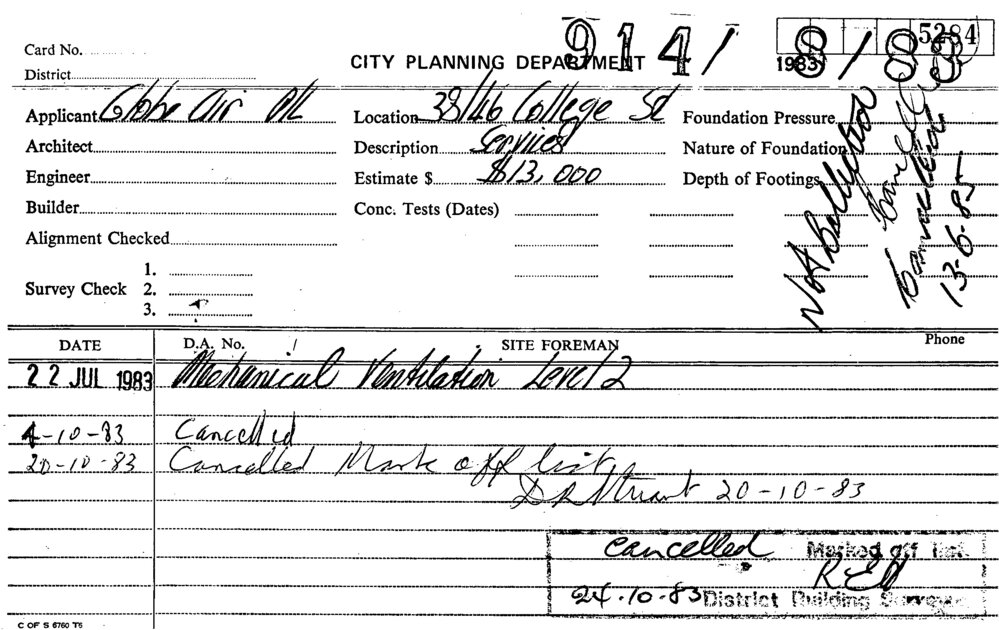 Card No.
District
CITY PLANNING DEPARTMENT
914/
5284
1983
Applicant Globe Air P/L
Location 38/46 College St
Foundation Pressure
Architect
Description Services
Nature of Foundation
Engineer
Estimate $ $13,000
Depth of Footings
Builder
Conc. Tests (Dates)
Alignment Checked
Survey Check
1.
2.
3.
Not
13-6-85
DATE
D.A. No. /
SITE FOREMAN
Phone
22 JUL 1983 Mechanical Ventilation Level 2
4-10-83 Cancelled
20-10-83 Cancelled Mark off list
20-10-83
Cancelled Marked off list.
24.10.83 District Building Surveyor
C OF S 6760 T6